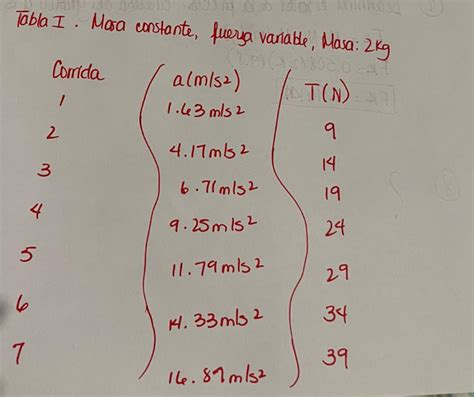 Tabla I. Masa constante, fuerza variable, Masa: 2kg
Corrida a(m/s2) T(N)
1 1.63 m/s2 9
2 4.17 m/s2 14
3 6.71 m/s2 19
4 9.25 m/s2 24
5 11.79 m/s2 29
6 14.33 m/s2 34
7 16.87 m/s2 39